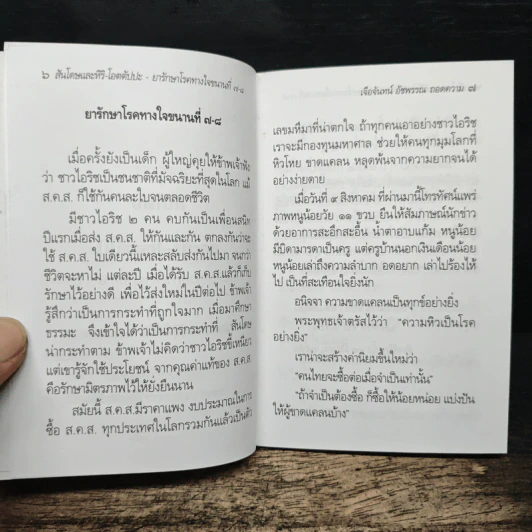 ๖ สันโดษและหิริ-โอตตัปปะ - ยารักษาโรคทางใจขนานที่ ๗-๘
ยารักษาโรคทางใจขนานที่ ๗-๘
เมื่อครั้งยังเป็นเด็ก ผู้ใหญ่คุยให้ข้าพเจ้าฟัง
ว่า ชาวไอริชเป็นชนชาติที่มัจฉริยะที่สุดในโลก แม้
ส.ค.ส. ก็ใช้กันคนละใบจนตลอดชีวิต
มีชาวไอริช ๒ คน คบกันเป็นเพื่อนสนิท
ปีแรกเมื่อส่ง ส.ค.ส. ให้กันและกัน ตกลงกันว่าจะ
ใช้ ส.ค.ส. ใบเดียวนี้แหละสลับส่งกันไปมา จนกว่า
ชีวิตจะหาไม่ แต่ละปี เมื่อได้รับ ส.ค.ส.แล้วก็เก็บ
รักษาไว้อย่างดี เพื่อไว้ส่งใหม่ในปีต่อไป ข้าพเจ้า
รู้สึกว่าเป็นการกระทำที่ถูกใจมาก เมื่อมาศึกษา
ธรรมะ จึงเข้าใจได้ว่าเป็นการกระทำที่ สันโดษ
น่ากระทำตาม ข้าพเจ้าไม่คิดว่าชาวไอริชขี้เหนียว
แต่เขารู้จักใช้ประโยชน์ จากคุณค่าแท้ของ ส.ค.ส.
คือรักษามิตรภาพไว้ให้ยั่งยืนนาน
สมัยนี้ ส.ค.ส.มีราคาแพง งบประมาณในการ
ซื้อ ส.ค.ส. ทุกประเทศในโลกรวมกันแล้วเป็นตัว
เจือจันทน์ อัชพรรณ ถอดความ ๗
เลขมหึมาที่น่าตกใจ ถ้าทุกคนเอาอย่างชาวไอริช
เราจะมีกองทุนมหาศาล ช่วยให้คนทุกมุมโลกที่
หิวโหย ขาดแคลน หลุดพ้นจากความยากจนได้
อย่างง่ายดาย
เมื่อวันที่ ๙ สิงหาคม ที่ผ่านมานี้โทรทัศน์แพร่
ภาพหนูน้อยวัย ๑๑ ขวบ ยืนให้สัมภาษณ์นักข่าว
ด้วยอาการสะอึกสะอื้น น้ำตาอาบแก้ม หนูน้อย
มีบิดามารดาเป็นครู แต่ครูบ้านนอกเงินเดือนน้อย
หนูน้อยเล่าถึงความลำบาก อดอยาก เล่าไปร้องไห้
ไป เป็นที่สะเทือนใจยิ่งนัก
อนิจจา ความขาดแคลนเป็นทุกข์อย่างยิ่ง
พระพุทธเจ้าตรัสไว้ว่า "ความหิวเป็นโรค
อย่างยิ่ง"
เราน่าจะสร้างค่านิยมขึ้นใหม่ว่า
"คนไทยจะซื้อต่อเมื่อจำเป็นเท่านั้น"
"ถ้าจำเป็นต้องซื้อ ก็ซื้อให้น้อยหน่อย แบ่งปัน
ให้ผู้ขาดแคลนบ้าง"